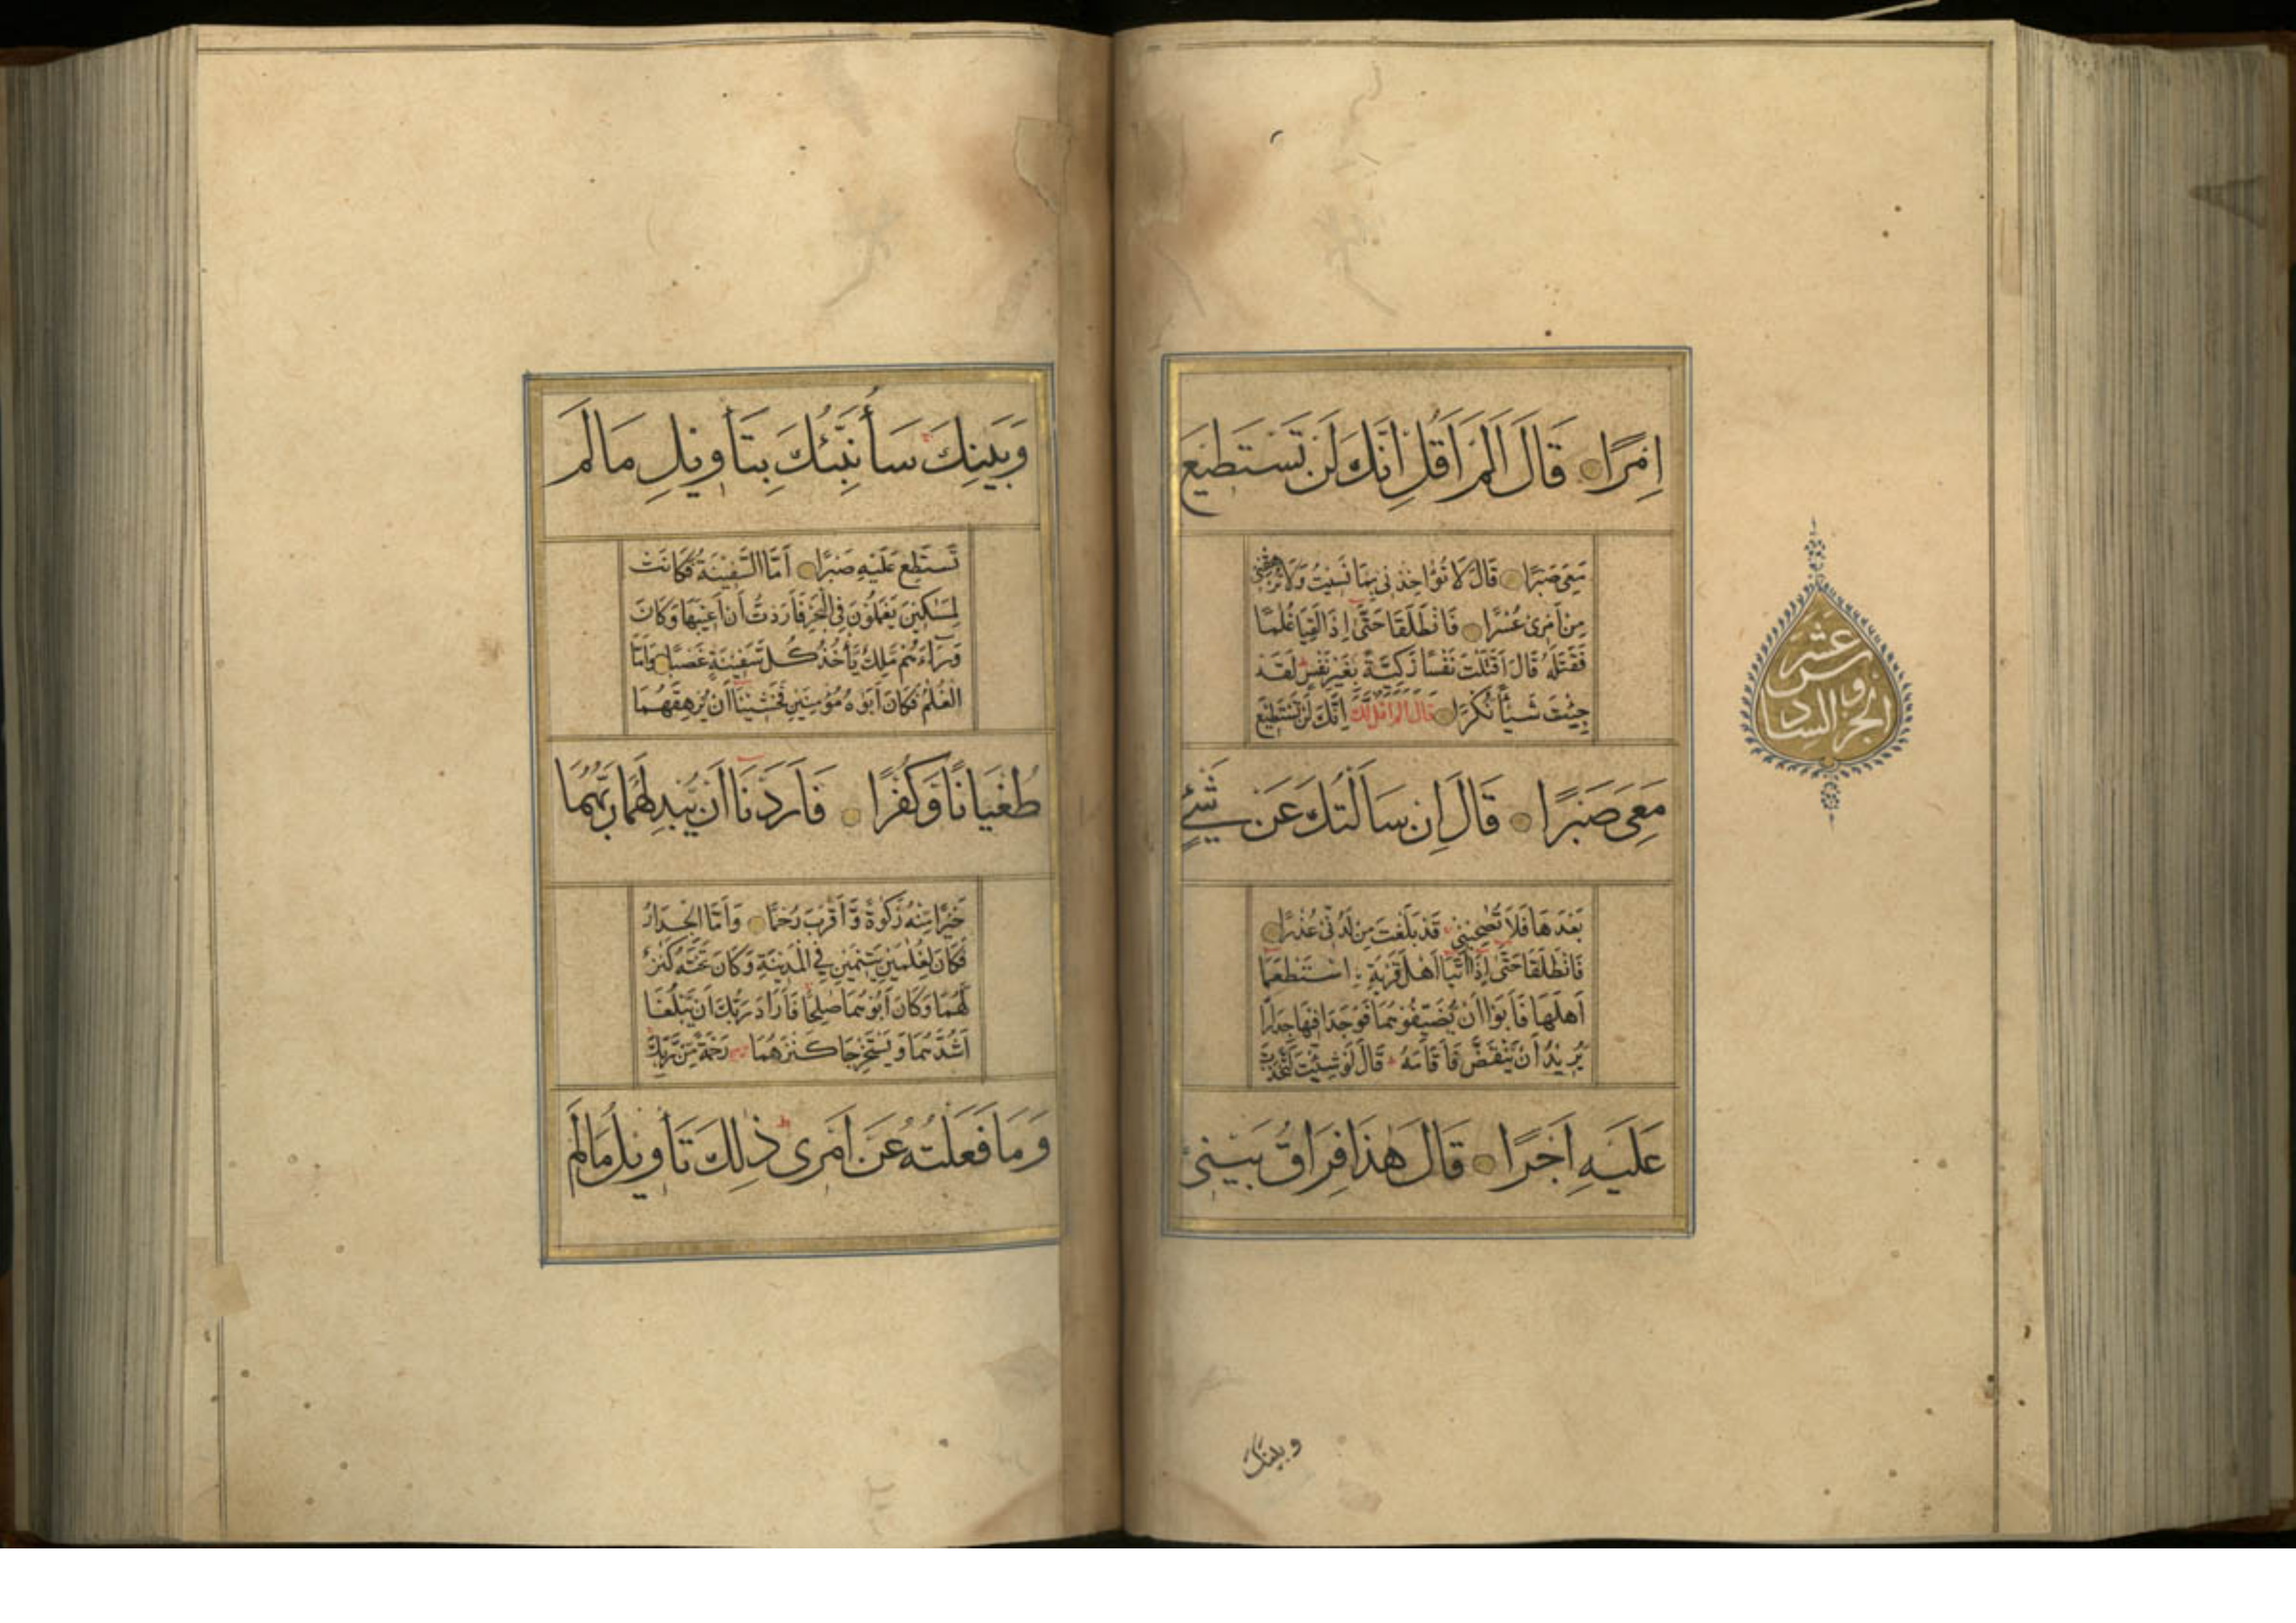 إِمْرًا قَالَ اَلَمْ اَقُلْ اِنَّكَ لَنْ تَسْتَطِيْعَ
مَعِيَ صَبْرًا قَالَ لَا تُؤَاخِذْنِي بِمَا نَسِيْتُ وَلَا تُرْهِقْنِي
مِنْ اَمْرِي عُسْرًا فَانْطَلَقَا حَتَّى اِذَا لَقِيَا غُلٰمًا
فَقَتَلَهُ قَالَ اَقَتَلْتَ نَفْسًا زَكِيَّةً بِغَيْرِ نَفْسٍ لَقَدْ
جِئْتَ شَيْئًا نُكْرًا قَالَ اَلَمْ اَقُلْ لَّكَ اِنَّكَ لَنْ تَسْتَطِيْعَ
مَعِيَ صَبْرًا قَالَ اِنْ سَاَلْتُكَ عَنْ شَيْءٍ
بَعْدَهَا فَلَا تُصٰحِبْنِي قَدْ بَلَغْتَ مِنْ لَدُنِّي عُذْرًا
فَانْطَلَقَا حَتَّى اِذَا اَتَيَا اَهْلَ قَرْيَةٍ اسْتَطْعَمَا
اَهْلَهَا فَاَبَوْا اَنْ يُّضَيِّفُوْهُمَا فَوَجَدَا فِيْهَا جِدَارًا
يُرِيْدُ اَنْ يَّنْقَضَّ فَاَقَامَهُ قَالَ لَوْ شِئْتَ لَتَّخَذْتَ
عَلَيْهِ اَجْرًا قَالَ هٰذَا فِرَاقُ بَيْنِي
الجزو السادس عشر
وبينك
وَبَيْنِكَ سَأُنَبِّئُكَ بِتَأْوِيْلِ مَا لَمْ
تَسْتَطِعْ عَلَيْهِ صَبْرًا اَمَّا السَّفِيْنَةُ فَكَانَتْ
لِمَسٰكِيْنَ يَعْمَلُوْنَ فِي الْبَحْرِ فَاَرَدْتُّ اَنْ اَعِيْبَهَا وَكَانَ
وَرَآءَهُمْ مَّلِكٌ يَّأْخُذُ كُلَّ سَفِيْنَةٍ غَصْبًا وَاَمَّا
الْغُلٰمُ فَكَانَ اَبَوٰهُ مُؤْمِنَيْنِ فَخَشِيْنَا اَنْ يُّرْهِقَهُمَا
طُغْيَانًا وَّكُفْرًا فَاَرَدْنَا اَنْ يُّبْدِلَهُمَا رَبُّهُمَا
خَيْرًا مِّنْهُ زَكٰوةً وَّاَقْرَبَ رُحْمًا وَاَمَّا الْجِدَارُ
فَكَانَ لِغُلٰمَيْنِ يَتِيْمَيْنِ فِي الْمَدِيْنَةِ وَكَانَ تَحْتَهُ كَنْزٌ
لَّهُمَا وَكَانَ اَبُوْهُمَا صَالِحًا فَاَرَادَ رَبُّكَ اَنْ يَّبْلُغَا
اَشُدَّهُمَا وَيَسْتَخْرِجَا كَنْزَهُمَا رَحْمَةً مِّنْ رَّبِّكَ
وَمَا فَعَلْتُهُ عَنْ اَمْرِي ذٰلِكَ تَأْوِيْلُ مَا لَمْ